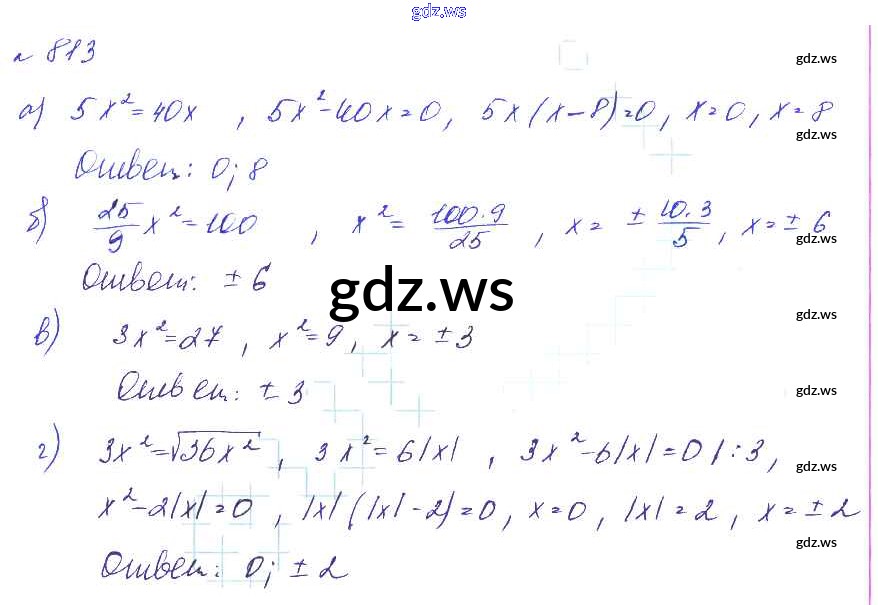 gdz.ws
№ 813
gdz.ws
а) 5x² = 40x , 5x² - 40x = 0, 5x(x-8) = 0, x = 0, x = 8
gdz.ws
Ответ: 0; 8
б) 25/9 x² = 100 , x² = 100·9/25 , x = ± 10·3/5 , x = ± 6
gdz.ws
Ответ: ± 6
gdz.ws
gdz.ws
в) 3x² = 27 , x² = 9, x = ± 3
Ответ: ± 3
gdz.ws
г) 3x² = √36x² , 3x² = 6|x| , 3x² - 6|x| = 0 |:3,
gdz.ws
x² - 2|x| = 0 , |x|(|x| - 2) = 0, x = 0, |x| = 2 , x = ± 2
gdz.ws
Ответ: 0; ± 2